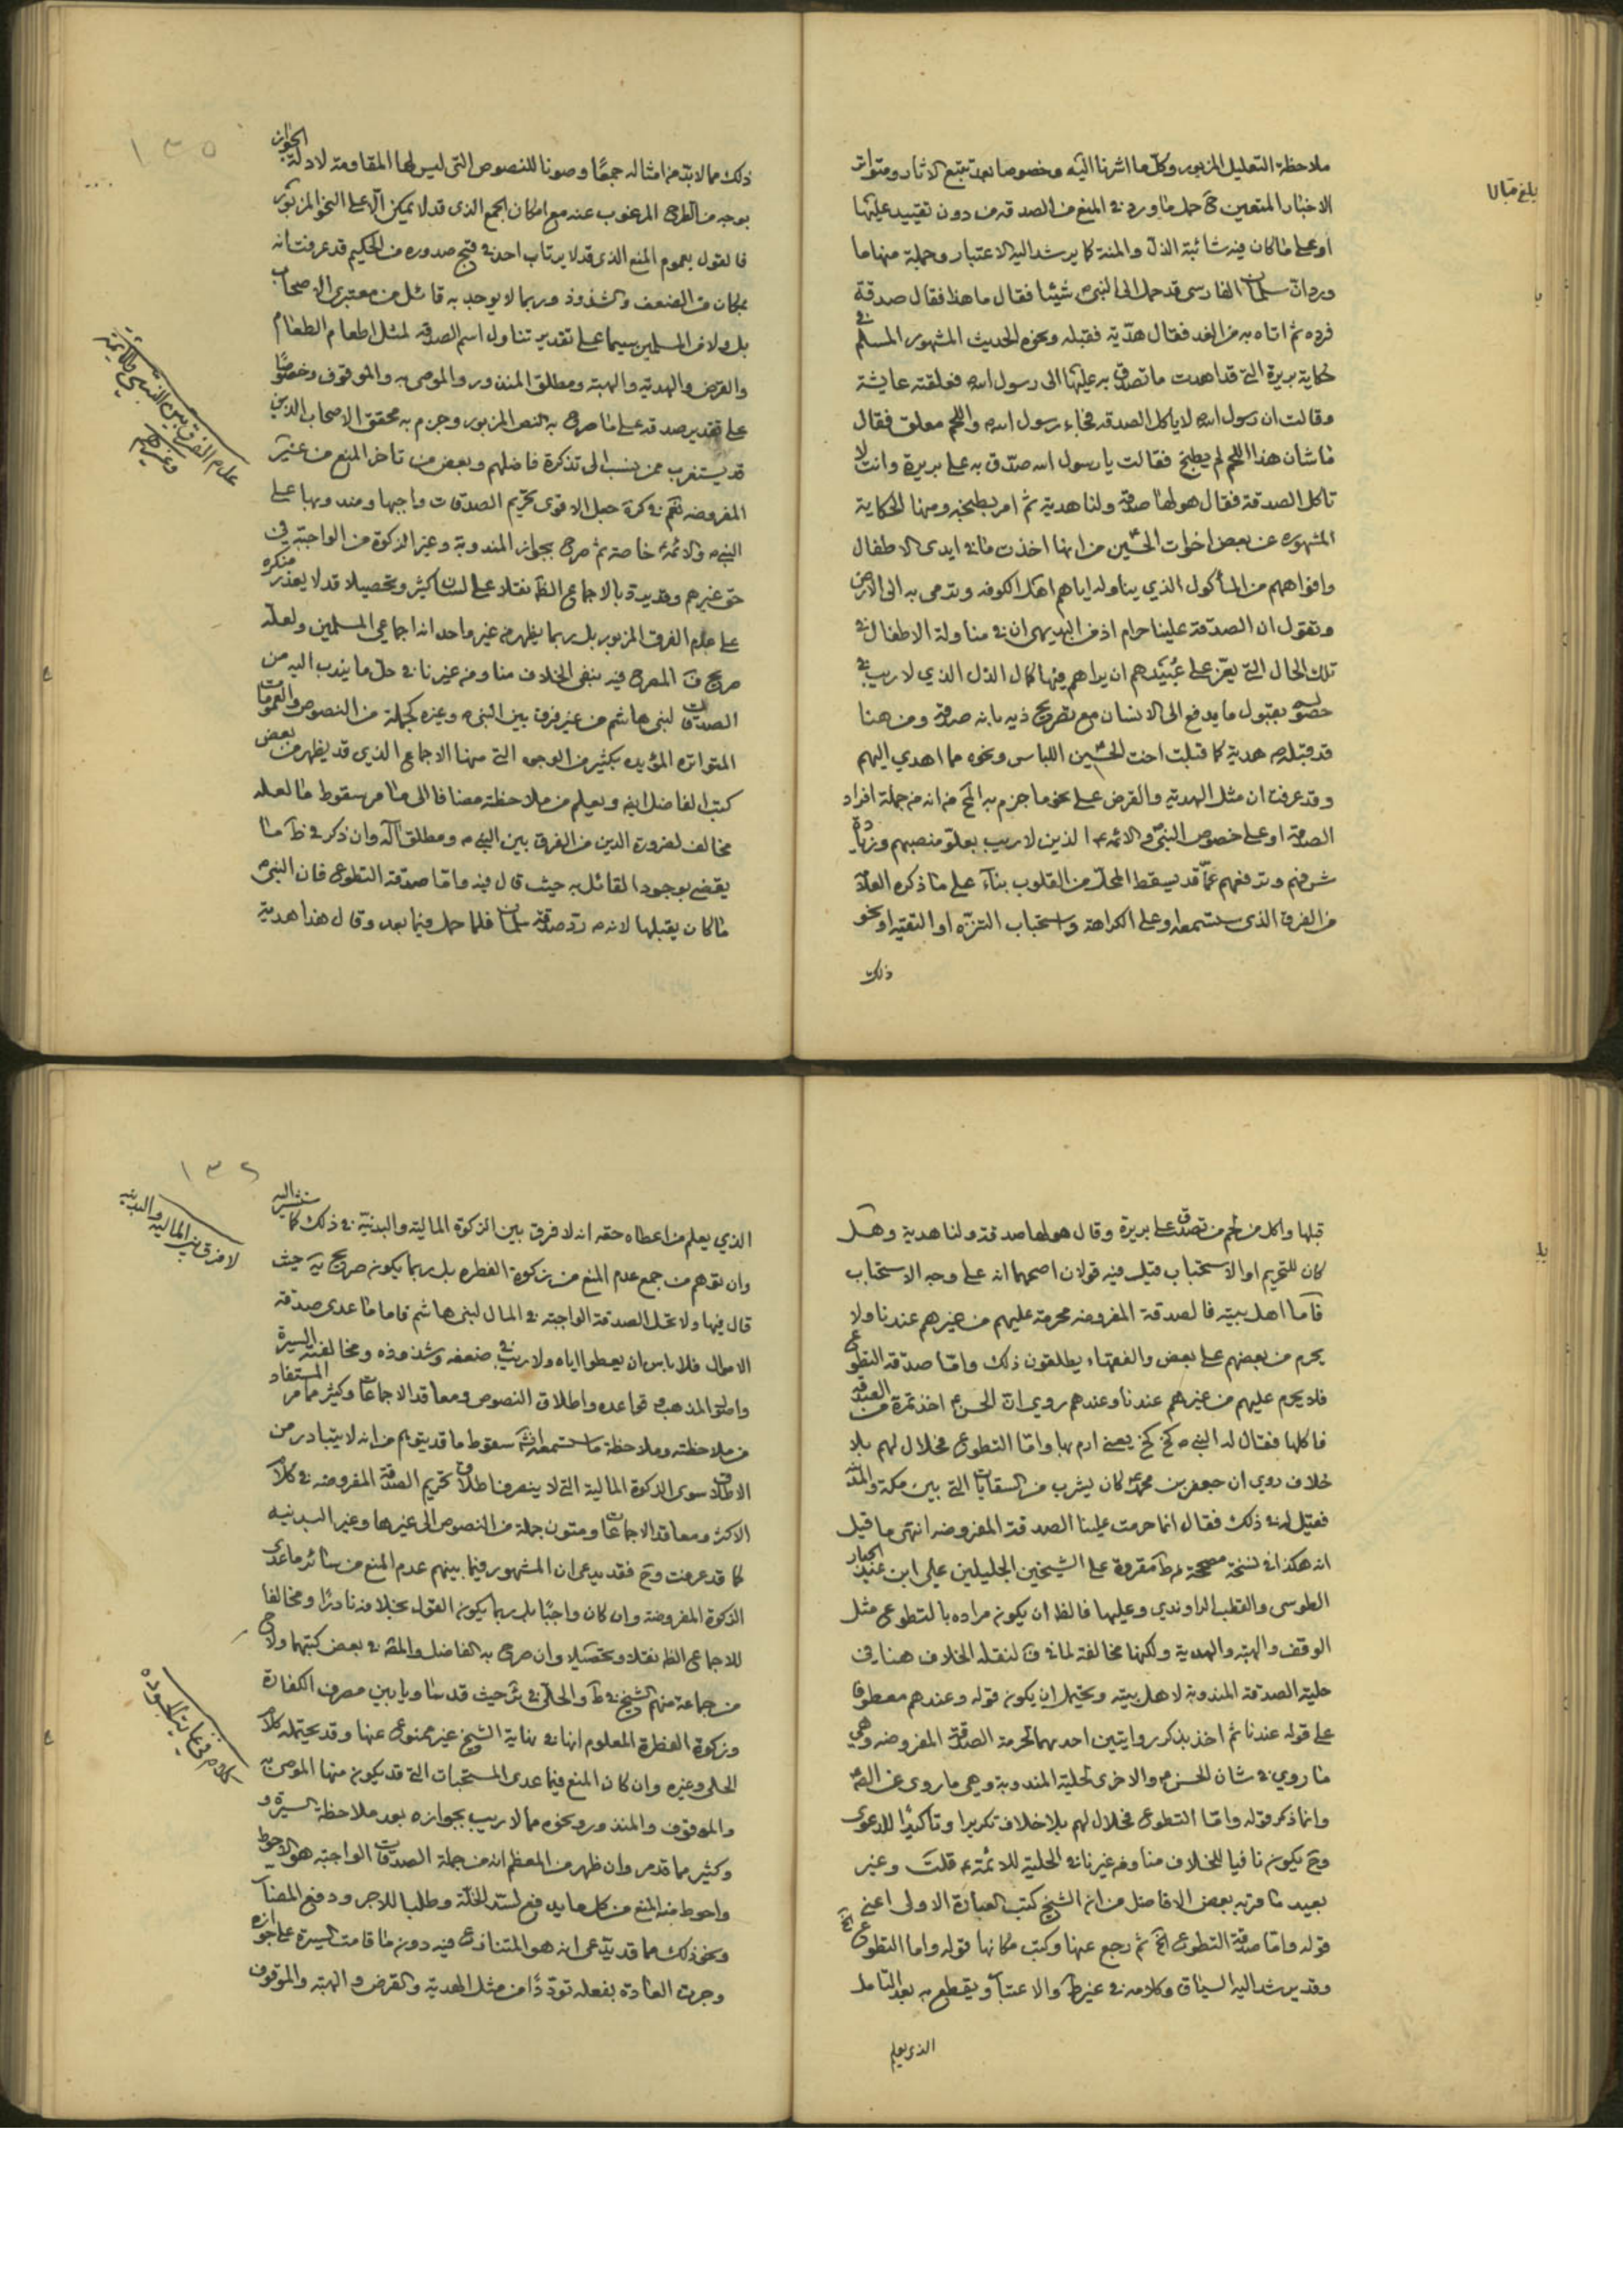 ملاحظة التعليل المزبور وكل ما اشرنا اليه وخصوصا بعد تتبع الاثار ومتواتر
الاخبار المتعين ح حمل ما ورد في المنع من الصدقة من دون تقييد عليها
او على ما كان فيه شائبة الذل والمنة كما يرشد اليه الاعتبار وجملة منها ما
ورد ان سلمان الفارسى قد حمل الى النبي ص شيئا فقال ما هذا فقال صدقة
فرده ثم اتاه به من الغد فقال هدية فقبله ونحوه الحديث المشهور المسلم في
حكاية بريرة التى قد اهدت ما تصدق به عليها الى رسول الله فعلقته عايشة
وقالت ان رسول الله لا ياكل الصدقه فجاء رسول الله واللحم معلق فقال
ما شان هذا اللحم لم يطبخ فقالت يا رسول الله صدق به على بريرة وانت لا
تاكل الصدقة فقال هو لها صدقة ولنا هدية ثم امر بطبخه ومنها الحكاية
المشهوره عن بعض اخوات الحسين من انها اخذت ما في ايدى الاطفال
وافواههم من المأكول الذي يناوله اياهم اهل الكوفه وترمى به الى الارض
وتقول ان الصدقة علينا حرام اذ من البديهى ان في مناولة الاطفال في
تلك الحال التى يعز على عبيدهم ان يراهم فيها كمال الذل الذي لا ريب في
حصوله بقبول ما يدفع الى الانسان مع تصريح ذيه بانه صدقة ومن هنا
قد قبله ص هدية كما قبلت اخت الحسين اللباس ونحوه مما اهدي اليهم
وقد عرفت ان مثل الهدية والقرض على نحو ما جزم به الخ من انه من جملة افراد
الصدقة او على خصوص النبي والائمه ع الذين لا ريب بعلو منصبهم وزيادة
شرفهم وترفعهم عما قد يسقط المحل من القلوب بناء على ما ذكره العلامة
من الفرق الذى ستسمعه او على الكراهة واستحباب التنزه او التقيه او نحو
ذلك
بلغ قبالا
١٣٥
ذلك مما لا بد من امثاله جمعًا وصونا للنصوص التى ليس لها المقاومة لادلة الجواز
بوجه من الطرح المرغوب عنه مع امكان الجمع الذى قد لا يمكن الا على النحو المزبور
فالقول بعموم المنع الذى قد لا يرتاب احد في قبح صدوره من الحكيم قد عرفت انه
بمكان من الضعف والشذوذ وربما لا يوجد به قائل من معتبرى الاصحاب
بل ولا من المسلمين سيما على تقدير تناول اسم الصدقه لمثل اطعام الطعام
والقرض والهدية والهبة ومطلق المنذور والموصى به والموقوف وخصوصًا
على تقدير صدقه على ما صرح به النص المزبور وجزم به محقق الاصحاب الذين
قد يستغرب ممن ينسب الى تذكرة فاضلهم وبعض من تاخر المنع من غير
المفروضه نعم في كرة جعل الاقوى تحريم الصدقات واجبها ومندوبها على
النبي ص والائمة ع خاصة ثم صرح بجواز المندوبة وغير الزكوة من الواجبة في
حق غيرهم وقد يرد بالاجماع الظ نقلا على لسان كثير وتحصيلا قد لا يعذر منكره
على عدم الفرق المزبور بل ربما يظهر من غير واحد انه اجماعي المسلمين ولعله
صريح ف المصرح فيه بنفى الخلاف منا ومن غيرنا في حل ما يندب اليه من
الصدقات لبنى هاشم من غير فرق بين النبي ص وغيره كجملة من النصوص والعمومات
المتواتره المؤيده بكثير من الوجوه التى منها الاجماع الذي قد يظهر من بعض
كتب الفاضل ايضا ويعلم من ملاحظته مضافا الى ما مر سقوط ما لعله
مخالف لضرورة الدين من الفرق بين النبي ص ومطلق اله وان ذكر في ط ما
يقضي بوجود القائل به حيث قال فيه واما صدقة التطوع فان النبي ص
ما كان يقبلها لانه ص رد صدقة سلمان فلما حمل فيما بعد وقال هذا هدية
عدم الفرق بين النبي والائمة
وغيرهم
قبلها واكل من لحم من تصدق على بريرة وقال هو لها صدقة ولنا هدية وهل
كان للتحريم او الاستحباب قيل فيه قولان اصحهما انه على وجه الاستحباب
فاما اهل بيته فالصدقة المفروضه محرمة عليهم من غيرهم عندنا ولا
يحرم من بعضهم على بعض والفقهاء يطلقون ذلك واما صدقة التطوع
فلا يحرم عليهم من غيرهم عندنا وعندهم روى ان الحسن ع اخذ تمرة من الصدقة
فاكلها فقال له النبي ص كخ كخ يعنى ارم بها واما التطوع فحلال لهم بلا
خلاف روى ان جعفر بن محمد ع كان يشرب من السقايات التى بين مكة والمدينة
فقيل له في ذلك فقال انما حرمت علينا الصدقة المفروضه انتهى ما قيل
انه هكذا في نسخة مصححة لـ ط مقروة على الشيخين الجليلين على ابن عبد الجبار
الطوسى والقطب الراوندي وعليها فالظ ان يكون مراده بالتطوع مثل
الوقف والهبة والهدية ولكنها مخالفة لما في ف لنقله الخلاف هنا في
حلية الصدقة المندوبة لاهل بيته ويحتمل ان يكون قوله وعندهم معطوفا
على قوله عندنا ثم اخذ بذكر روايتين احديهما لحرمة الصدقة المفروضه وهي
ما روي في شان الحسن ع والاخرى لحلية المندوبة وهي ما روى عن الص ع
وانما ذكر قوله واما التطوع فحلال لهم بلا خلاف تكريرا وتاكيدًا للدعوى
وح يكون نافيا للخلاف منا ومن غيرنا في الحلية للائمة ع قلت وغير
بعيد ما قربه بعض الافاضل من ان الشيخ كتب العبارة الاولى اعنى
قوله واما صدقة التطوع الخ ثم رجع عنها وكتب مكانها قوله واما التطوع الخ
وقد يرشد اليه السياق وكلامه في غير ط والاعتبار ويقطع به بعد التامل
الذى يعلم
١٣٦
الذي يعلم من اعطاه حقه انه لا فرق بين الزكوة المالية والبدنية في ذلك كما نشير اليه
وان توهم من جمع عدم المنع من زكوة الفطره بل ربما يكون صريح يه حيث
قال فيها ولا تحل الصدقة الواجبة في المال لبنى هاشم فاما ما عدى صدقة
الاموال فلا باس ان يعطوا اياه ولا ريب في ضعفه وشذوذه ومخالفته السيرة
واصول المذهب وقواعده واطلاق النصوص ومعاقد الاجماعات وكثير مما مر المستفاد
من ملاحظته وملاحظة ما ستسمعه انش سقوط ما قد يتوهم من انه لا يتبادر من
الاطلاق سوى الزكوة المالية التى لا ينصرف اطلاق تحريم الصدقة المفروضه في كلام
الاكثر ومعاقد الاجماعات ومتون جملة من النصوص الى غيرها وغير البدنيه
كما قد عرفت وح فقد يدعى ان المشهور فيما بينهم عدم المنع من سائر ما عدى
الزكوة المفروضة وان كان واجبًا بل ربما يكون القول بخلافه نادرًا ومخالفا
للاجماع الظ نقلا وتحصيلا وان صرح به الفاضل والمقداد في بعض كتبهما ولاح
من جماعة منهم الشيخ في ط والحلى في ئر حيث قد ساويا بين مصرف الكفارة
وزكوة الفطرة المعلوم انها في نهاية الشيخ غير ممنوع عنها وقد يحتمله كلام
الحلى وغيره وان كان المنع فيما عدى المستحبات التى قد يكون منها الموصى به
والموقوف والمنذور ونحوه مما لا ريب بجوازه بعد ملاحظة السيرة و
وكثير مما قد مر وان ظهر من المعظم انه من جملة الصدقات الواجبة هو الاحوط
واحوط منه المنع من كل ما يدفع لسد الخلة وطلبا للاجر ودفع المضار
ونحو ذلك مما قد يدعى انه هو المتنازع فيه دون ما قامت السيرة على جوازه
وجرت العادة بفعله توددًا من مثل الهدية والقرض والهبة والموقوف
لا فرق بين المالية والبدنية